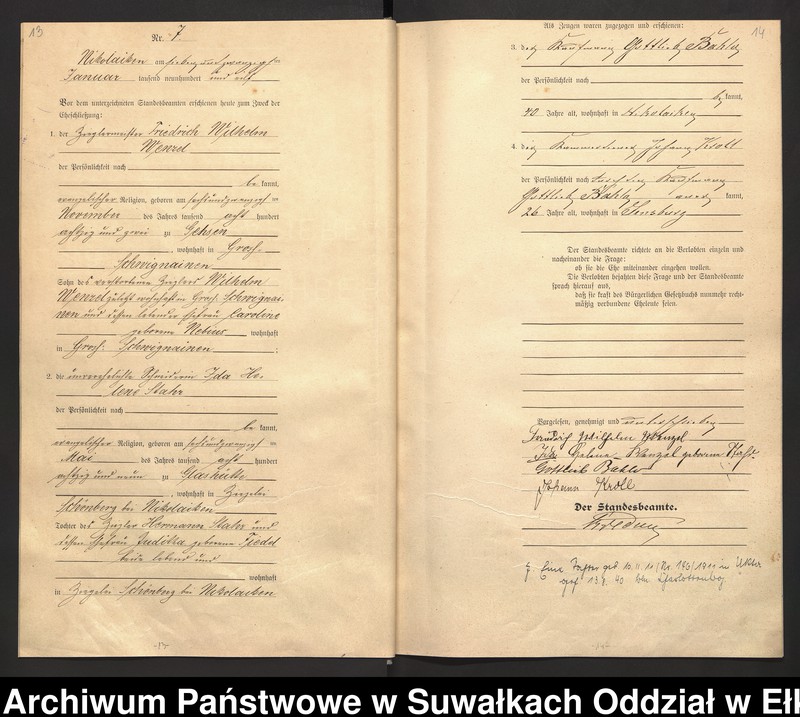 13
Nr. 7
Nikolaiken am siebenundzwanzigsten
Januar tausend neunhundert und elf
Vor dem unterzeichneten Standesbeamten erschienen heute zum Zweck der
Eheschließung:
1. der Zieglermeister Friedrich Wilhelm
Wenzel
der Persönlichkeit nach
be kannt,
evangelischer Religion, geboren am sechsundzwanzigsten
November des Jahres tausend acht hundert
achtzig und zwei zu Gehsen
, wohnhaft in Groß-
Schwignainen
Sohn des verstorbenen Zieglers Wilhelm
Wenzel zuletzt wohnhaft in Groß Schwignai-
nen und dessen lebender Ehefrau Caroline
geborene wohnhaft
in Groß Schwignainen ;
2. die unverehelichte Schneiderin Ida He-
lene Stahr
der Persönlichkeit nach
be kannt,
evangelischer Religion, geboren am sechsundzwanzigsten
Mai des Jahres tausend acht hundert
achtzig und neun zu Glashütte
, wohnhaft in Ziegelei
Schönberg bei Nikolaiken
Tochter des Ziegler Hermann Stahr und
dessen Ehefrau Judika geborene Fiedel
beide lebend und
wohnhaft
in Ziegelei Schönberg bei Nikolaiken
14
Als Zeugen waren zugezogen und erschienen:
3. der Kaufmann Gottlieb Bahlo
der Persönlichkeit nach
be kannt,
40 Jahre alt, wohnhaft in Nikolaiken
4. der Johann Kroll
der Persönlichkeit nach durch den Kaufmann
Gottlieb Bahlo kannt,
26 Jahre alt, wohnhaft in Sensburg
Der Standesbeamte richtete an die Verlobten einzeln und
nacheinander die Frage:
ob sie die Ehe miteinander eingehen wollen.
Die Verlobten bejahten diese Frage und der Standesbeamte
sprach hierauf aus,
daß sie kraft des Bürgerlichen Gesetzbuchs nunmehr recht-
mäßig verbundene Eheleute seien.
Vorgelesen, genehmigt und unterschrieben
Friedrich Wilhelm Wenzel
Ida Helene Wenzel geborene Stahr
Gottlieb Bahlo
Johann Kroll
Der Standesbeamte.
Eine Tochter geb. 10.11.11 (Nr. 146/1911 in Ukta
13.9.40 Charlottenburg
Archiwum Państwowe w Suwałkach Oddział w Ełk